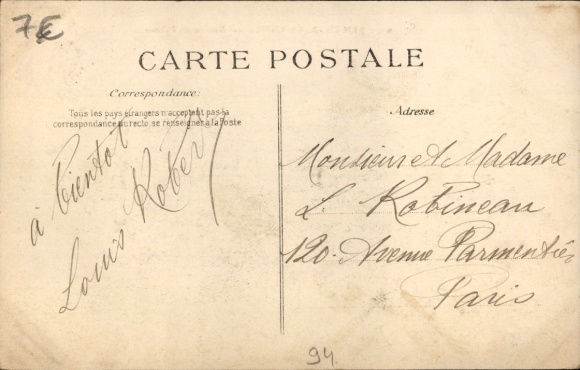 7€
CARTE POSTALE
Correspondance:
Tous les pays étrangers n'acceptent pas la
correspondance au recto, se renseigner à la Poste
à bientôt
Louis Robert
Adresse
Monsieur et Madame
L. Robineau
120. Avenue Parmentier
Paris
94.